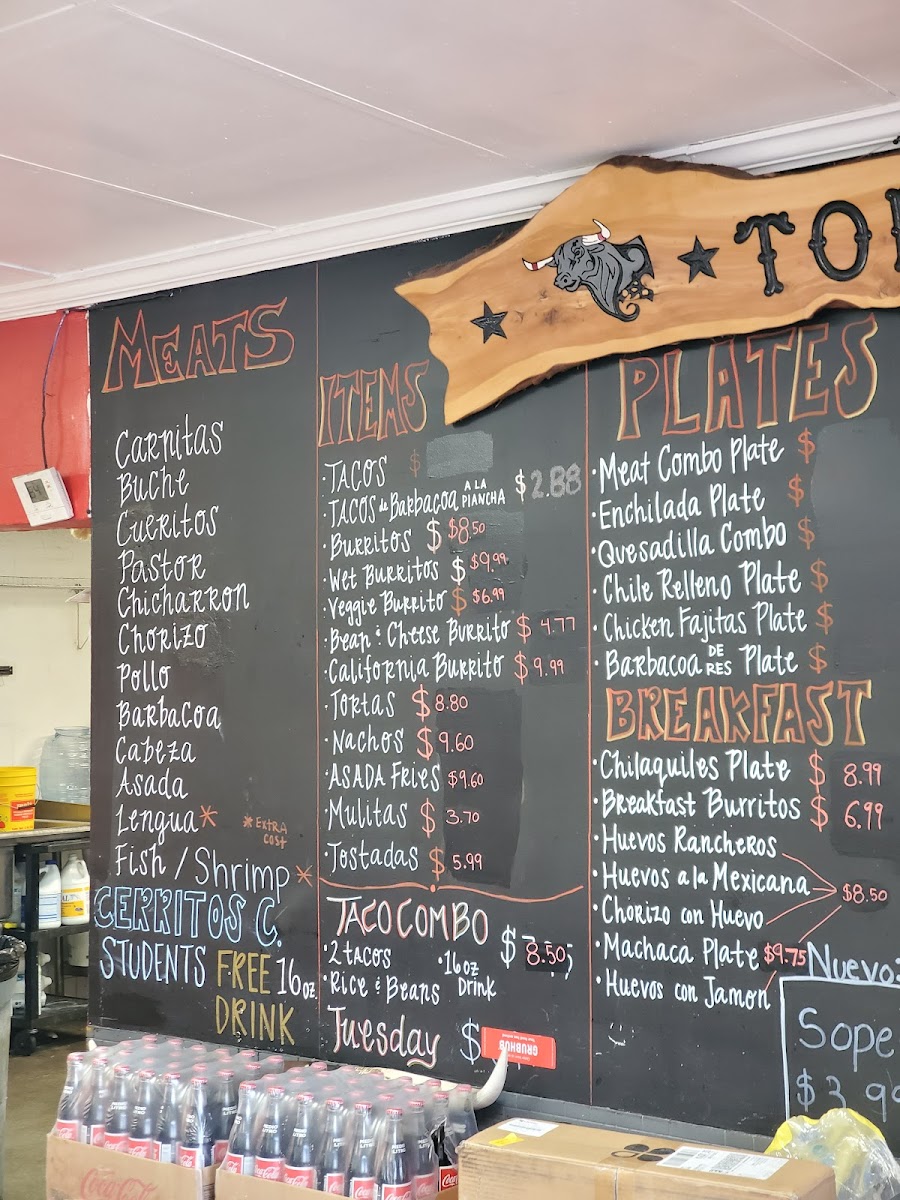 TO
MEATS
CARNITAS
BUCHE
CUERITOS
PASTOR
CHICHARRON
CHORIZO
POLLO
BARBACOA
CABEZA
ASADA
LENGUA*
*EXTRA COST
FISH / Shrimp*
CERRITOS C.
STUDENTS FREE 16oz
DRINK
ITEMS
TACOS $
·TACOS de BARBACOA A LA PLANCHA $2.88
·BURRITOS $ $8.50
·WET BURRITOS $ $9.99
·VEGGIE BURRITO $ $6.99
·BEAN & CHEESE BURRITO $ 4.77
·CALIFORNIA BURRITO $ 9.99
·TORTAS $ 8.80
·NACHOS $ 9.60
·ASADA FRIES $9.60
·MULITAS $ 3.70
·TOSTADAS $ 5.99
TACO COMBO $ 8.50
·2 TACOS ·16oz
·RICE & BEANS Drink
TUESDAY $
GRUBHUB
PLATES
·MEAT COMBO PLATE $
·ENCHILADA PLATE $
·QUESADILLA COMBO $
·CHILE RELLENO PLATE $
·CHICKEN FAJITAS PLATE $
·BARBACOA DE RES PLATE $
BREAKFAST
·CHILAQUILES PLATE $ 8.99
·BREAKFAST BURRITOS $ 6.99
·HUEVOS RANCHEROS
·HUEVOS a la MEXICANA $8.50
·CHORIZO CON HUEVO
·MACHACA PLATE $9.75
·HUEVOS CON JAMON
Nuevo:
Sope
$3.99
Coca-Cola